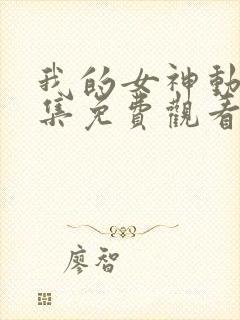 我的女神動
集免費觀看
廖智